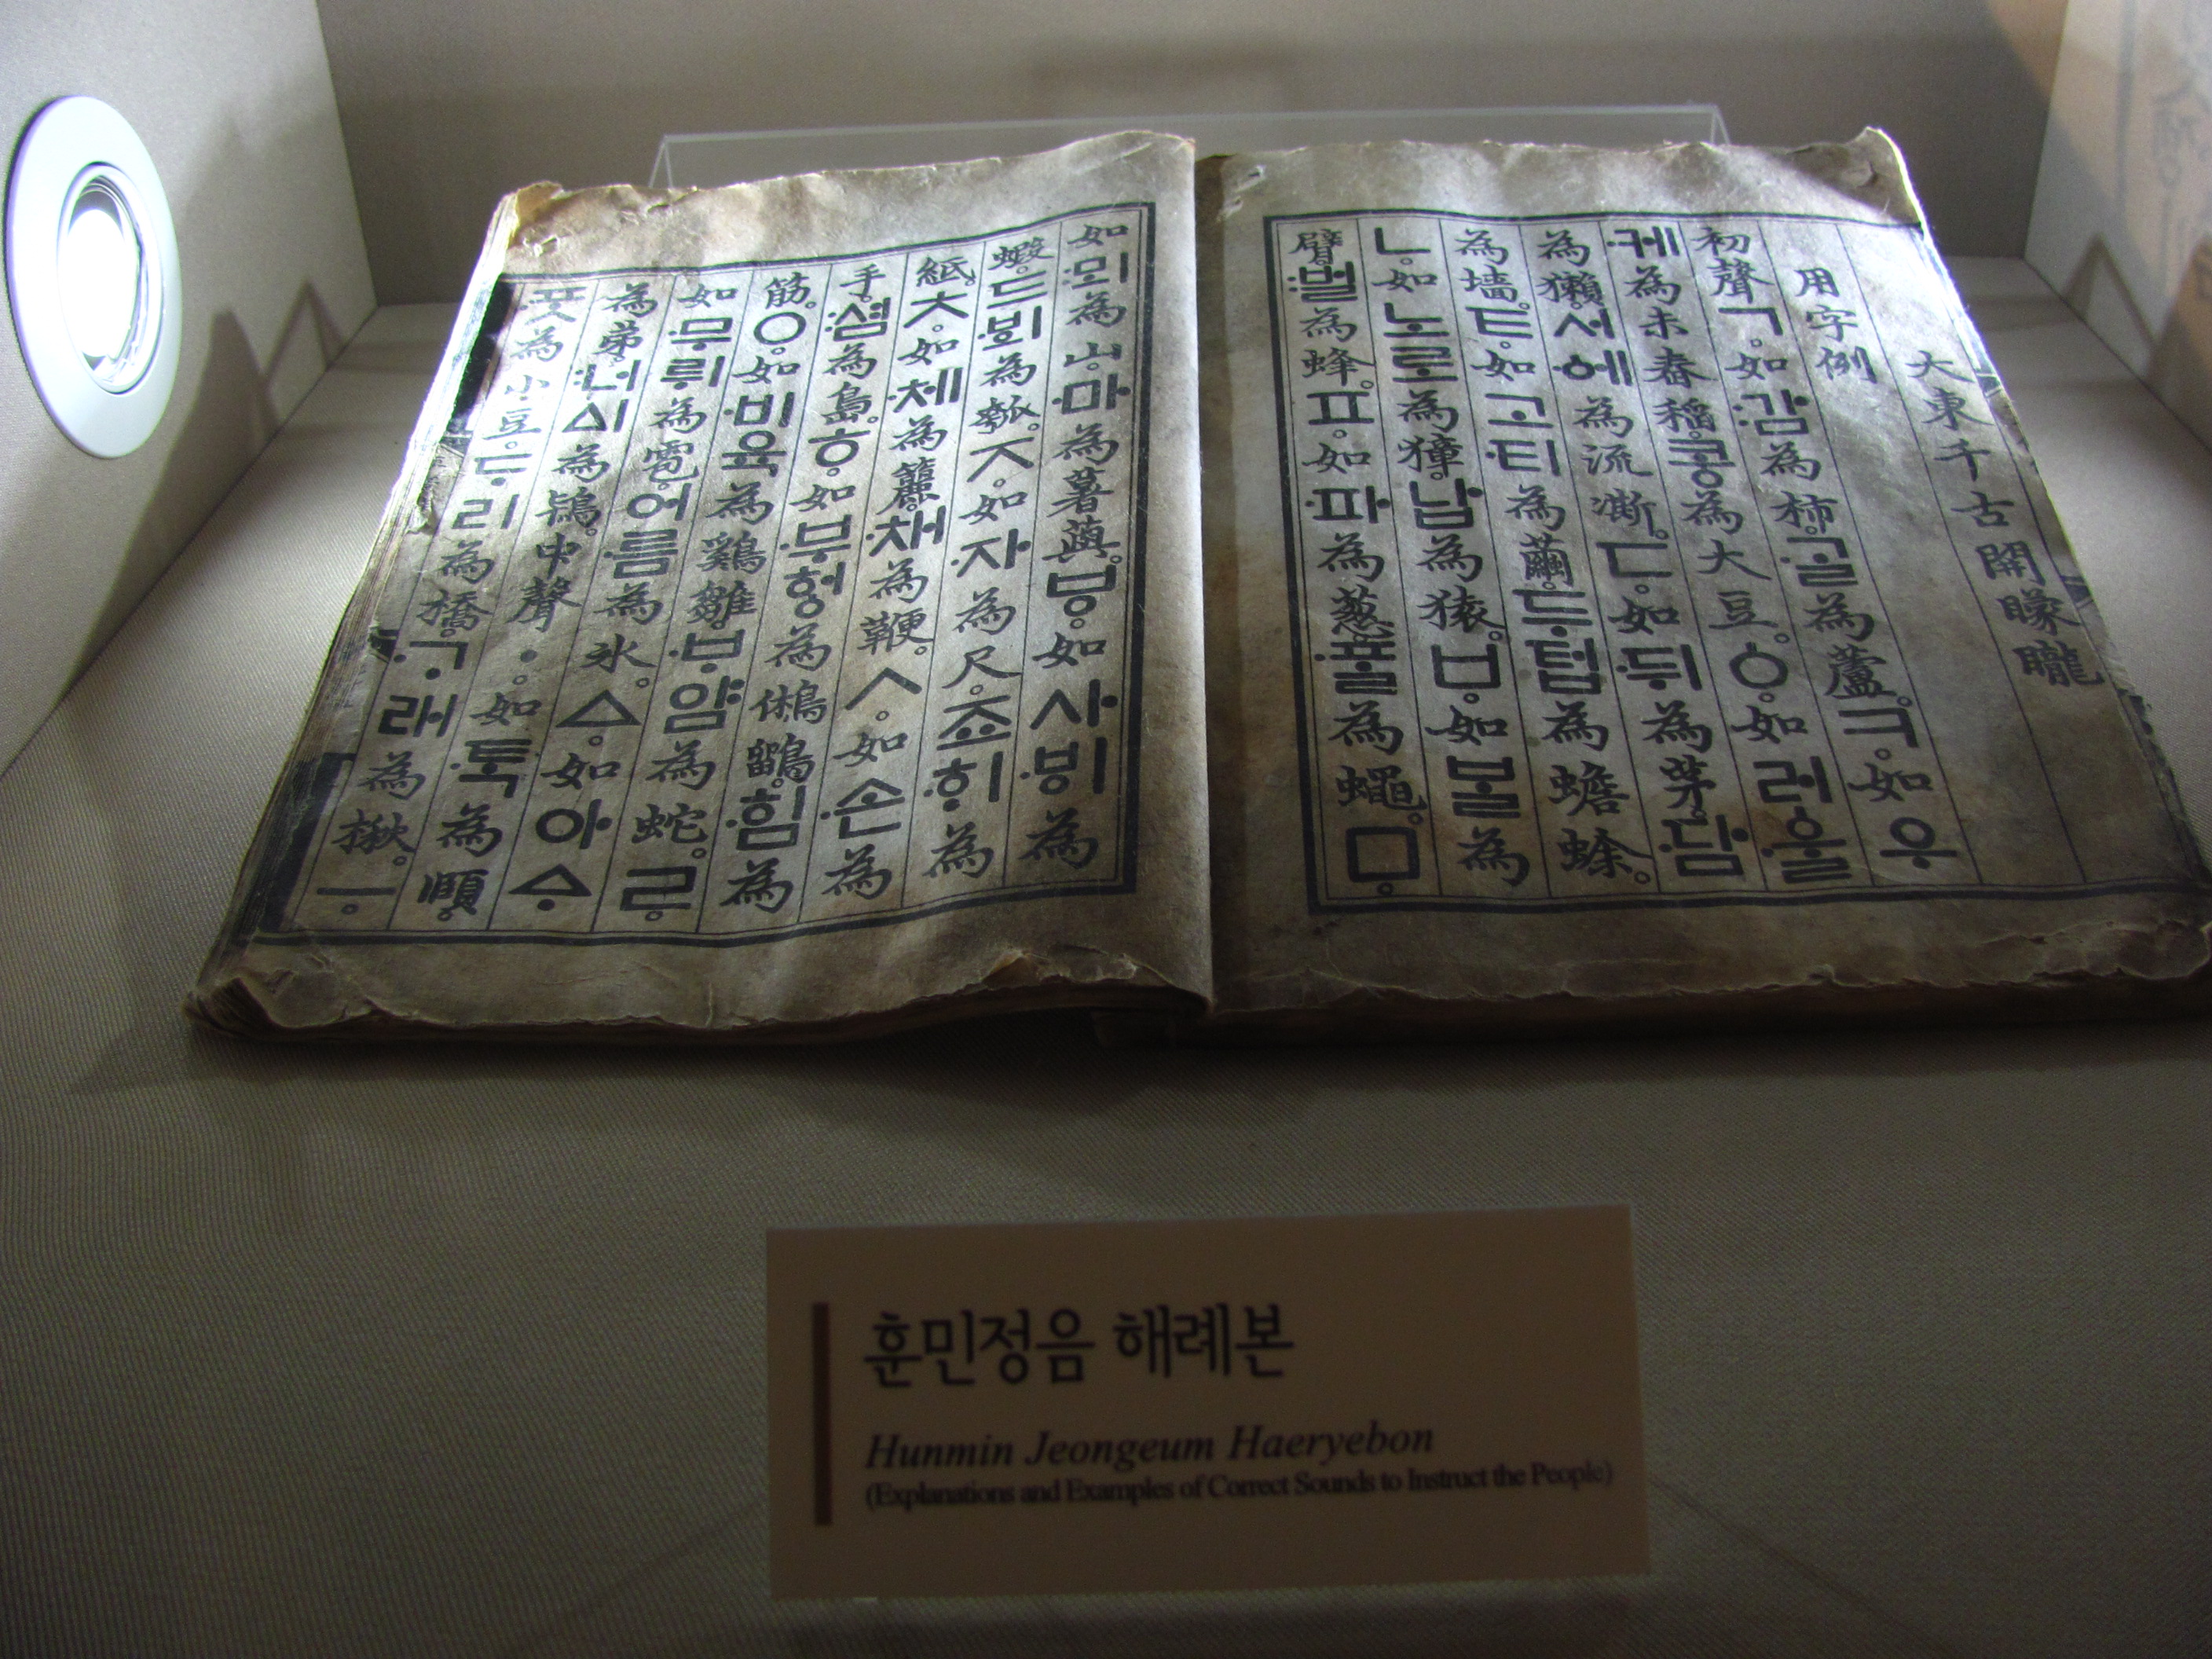 大東千古開矇矓
用字例
初聲ㄱ。如:감為柿。·ᄀᆞᆯ為蘆。ㅋ。如우
·케為未舂稻。콩為大豆。ㆁ。如러·ᅌᅮᆯ
為獺。서·에為流凘。ㄷ。如·뒤為茅。·담
為墻。ㅌ。如고·티為繭。두텁為蟾蜍。
ㄴ。如노로為獐。납為猿。ㅂ。如ᄇᆞᆯ為
臂。:벌為蜂。ㅍ。如·파為葱。·ᄑᆞᆯ為蠅。ㅁ。
如:뫼為山。·마為薯藇。ㅸ。如사·ᄫᅵ為
蝦。드·ᄫᅴ為瓠。ㅈ。如·자為尺。죠·ᄒᆡ為
紙。ㅊ。如·체為籭。·채為鞭。ㅅ。如·손為
手。:셤為島。ㅎ。如·부헝為鵂鶹。·힘為
筋。ㅇ。如·비육為鷄雛。·ᄇᆞ얌為蛇。ㄹ。
如·무뤼為雹。어·름為氷。ㅿ。如아ᅀᆞ
為弟。:너ᅀᅵ為鴇。中聲ㆍ。如·ᄐᆞᆨ為頤。
·ᄑᆞᆺ為小豆。ᄃᆞ리為橋。·ᄀᆞ래為楸。ㅡ。
훈민정음 해례본
Hunmin Jeongeum Haeryebon
(Explanations and Examples of Correct Sounds to Instruct the People)